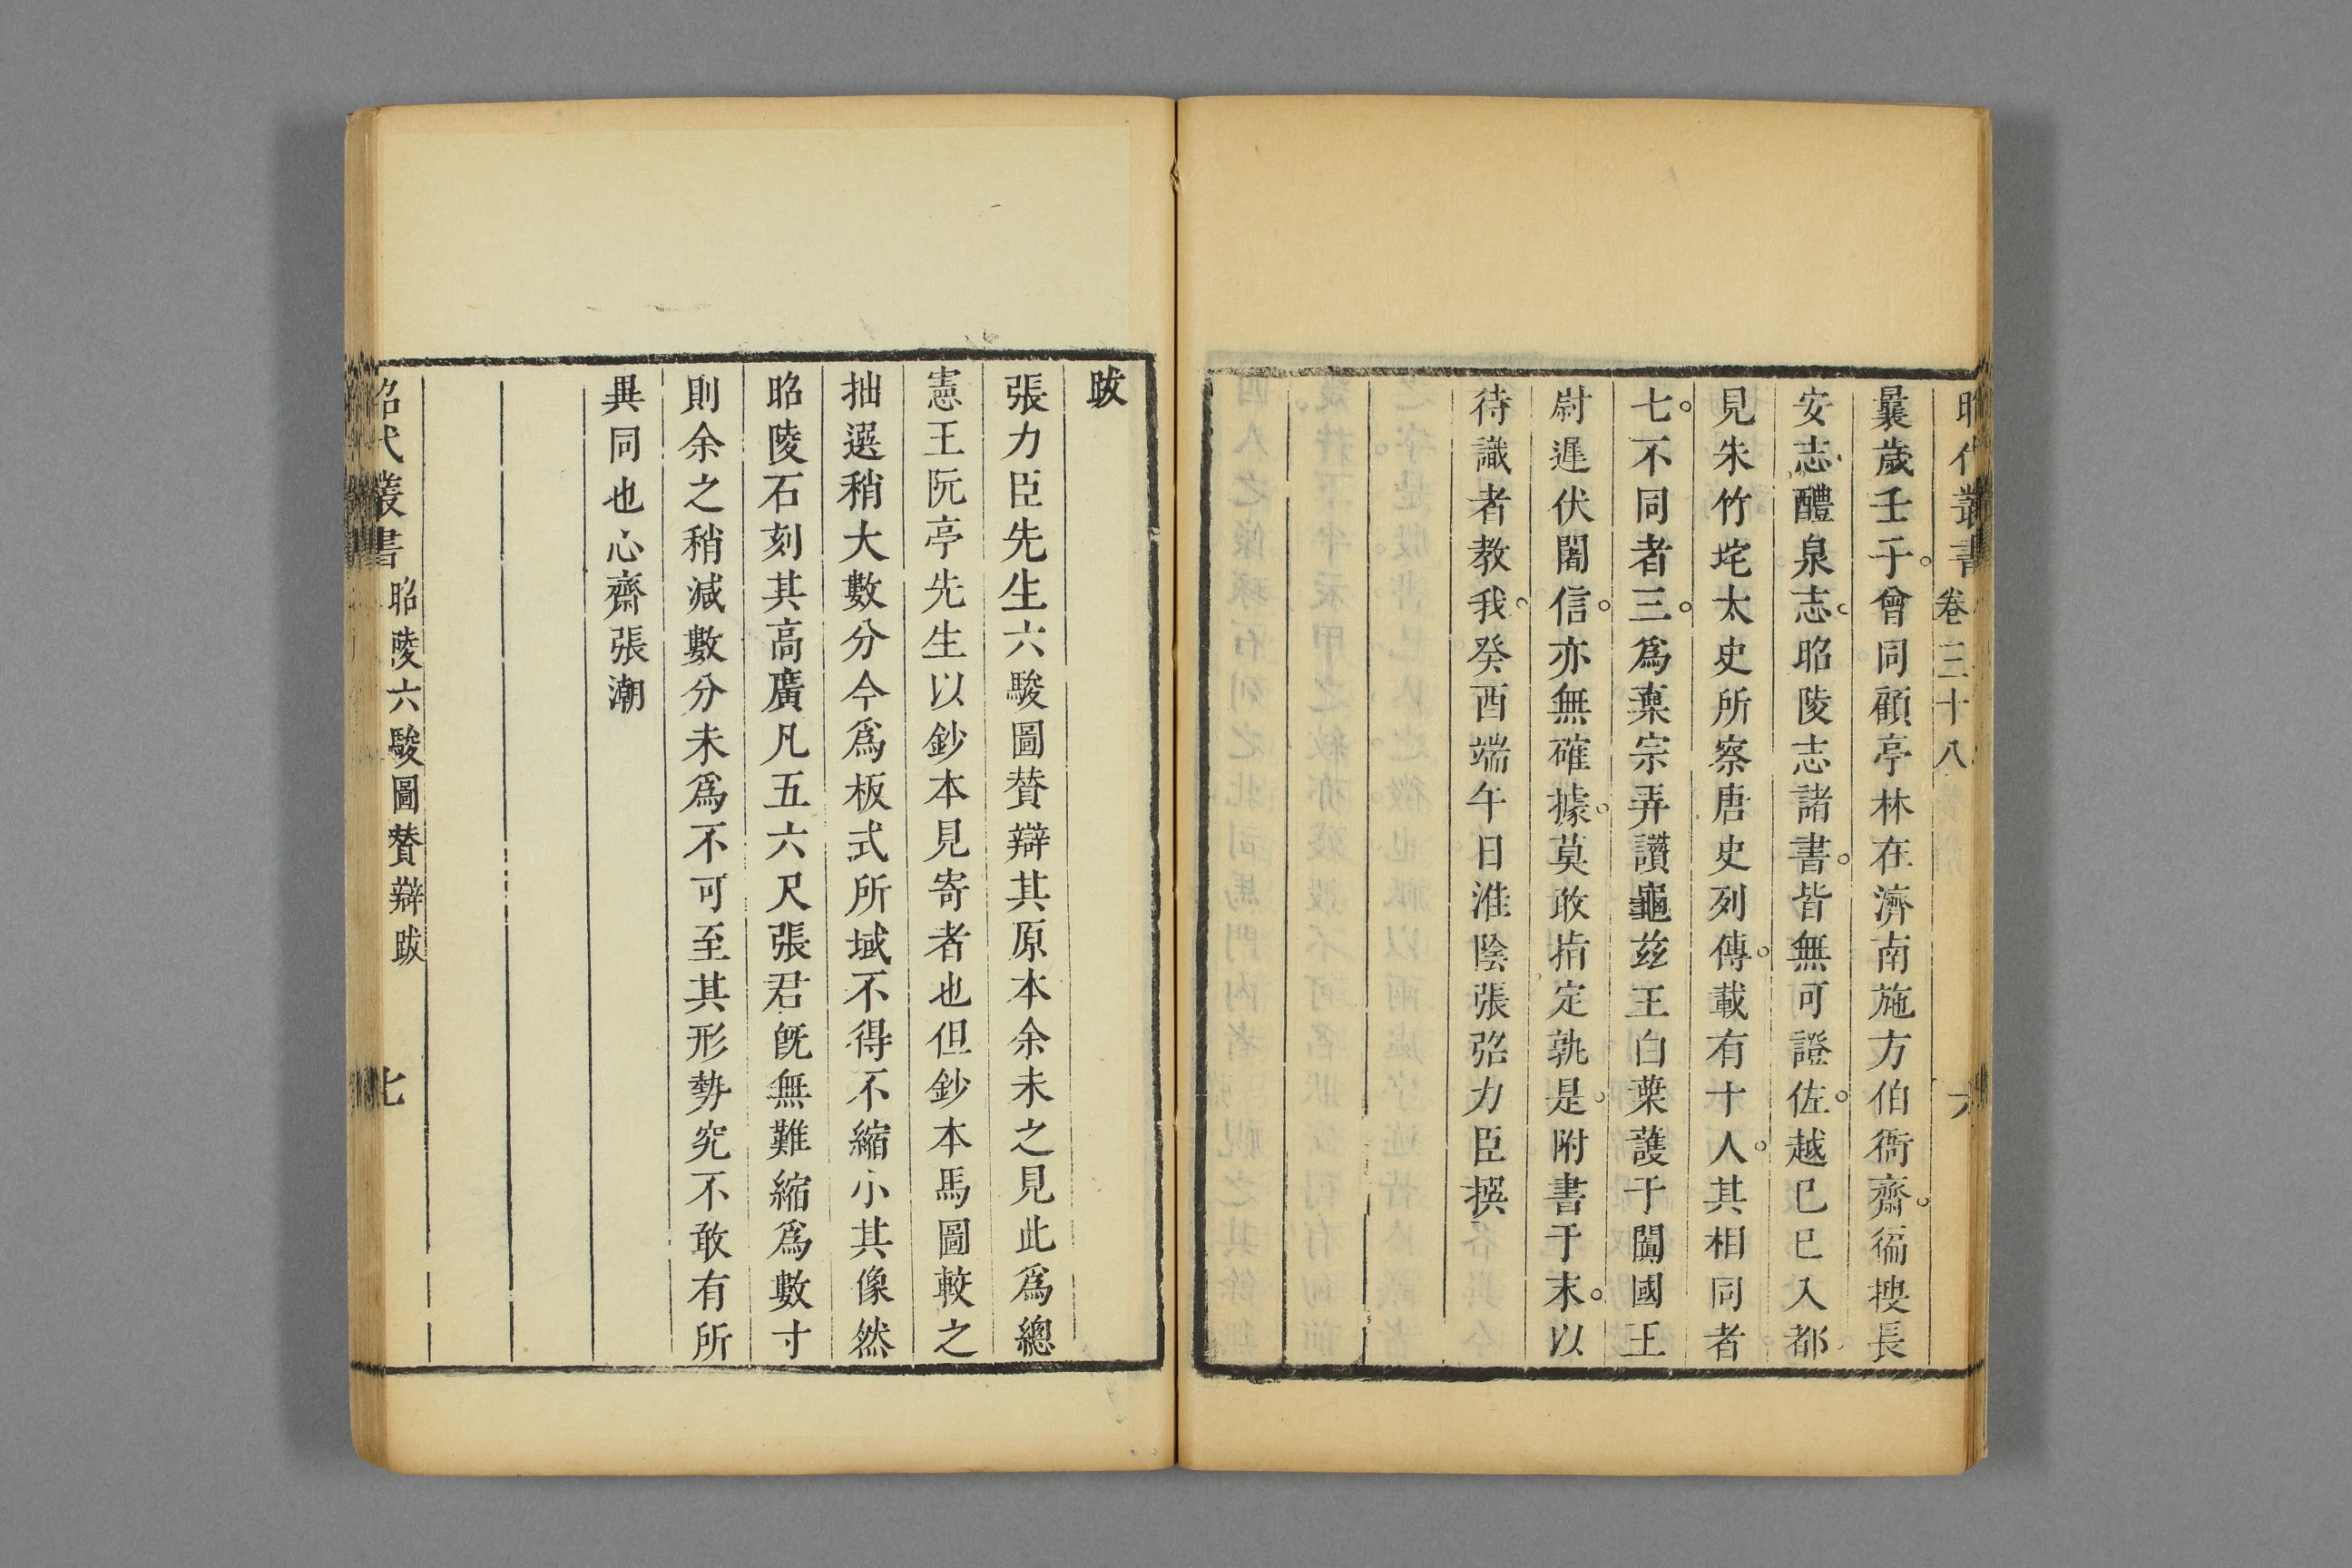 昭代叢書 卷三十八 六
曩歲壬子。曾同顧亭林在濟南施方伯衙齋。徧搜長
安志、醴泉志。昭陵志諸書。皆無可證佐。越己巳入都、
見朱竹垞太史所察唐史列傳。載有十人。其相同者
七。不同者三。爲棄宗弄讚龜兹王白葉護于闐國王
尉遲伏闍信。亦無確據。莫敢指定孰是。附書于末。以
待識者教我。癸酉端午日淮陰張弨力臣撰
跋
張力臣先生六駿圖贊辯其原本余未之見此爲總
憲王阮亭先生以鈔本見寄者也但鈔本馬圖較之
拙選稍大數分今爲板式所域不得不縮小其像然
昭陵石刻其高廣凡五六尺張君旣無難縮爲數寸
則余之稍減數分未爲不可至其形勢究不敢有所
異同也心齋張潮
昭代叢書 昭陵六駿圖贊辯跋 七